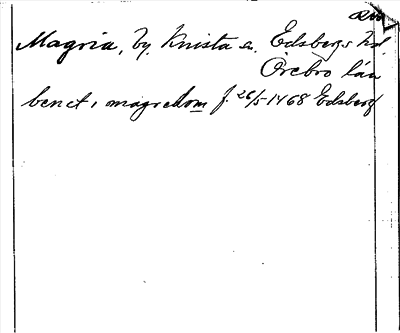 Magria, by, Knista sn. Edsbergs hd
Örebro län
benct i magredom f. 26/5-1468 Edsberg